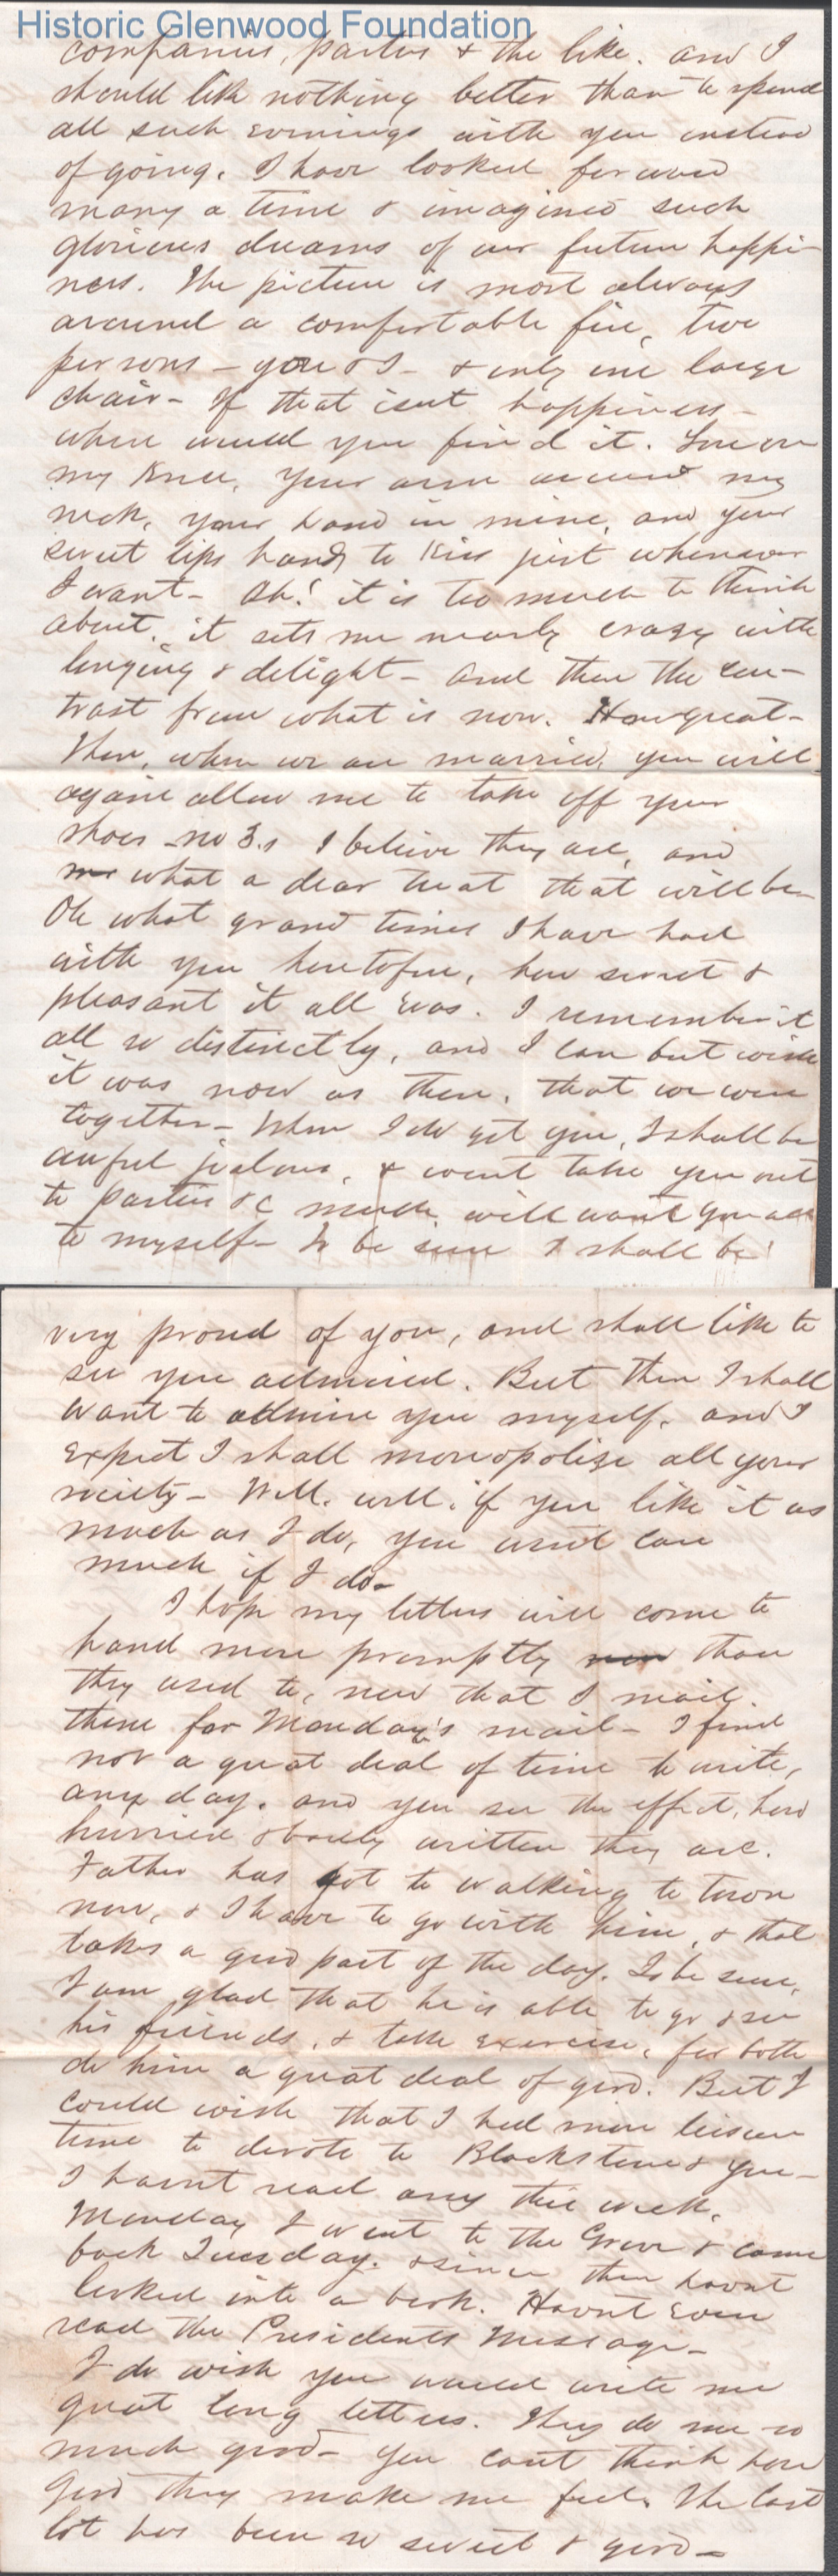 Historic Glenwood Foundation
companies, parties & the like. and I
should like nothing better than to spend
all such evenings with you instead
of going. I have looked forward
many a time & imagined such
glorious dreams of our future happi-
ness. The picture is most always
around a comfortable fire, two
persons - you & I - & only one large
chair - If that isnt happiness -
where would you find it. You on
my knee, your arm around my
neck, your hand in mine, and your
sweet lips handy to kiss just whenever
I want - Oh! it is too much to think
about, it sets me nearly crazy with
longing & delight - And then the con-
trast from what is now. How great -
Then, when we are married, you will
again allow me to take off your
shoes - no 3.s I believe they are, and
what a dear treat that will be -
Oh what grand times I have had
with you heretofore, how sweet &
pleasant it all was. I remember it
all so distinctly, and I can but wish
it was now as then, that we were
together - When I do get you, I shall be
awful jealous, & wont take you out
to parties &c much, will want you all
to myself - To be sure I shall be
very proud of you, and shall like to
see you admired. But then I shall
want to admire you myself, and I
expect I shall monopolize all your
society - Well, well, if you like it as
much as I do, you wont care
much if I do -
I hope my letters will come to
hand more promptly than
they used to, now that I mail
them for Monday's mail - I find
not a great deal of time to write,
any day, and you see the effect, how
hurried & badly written they are.
Father has got to walking to town
now, & I have to go with him, & that
takes a good part of the day. To be sure,
I am glad that he is able to go & see
his friends, & take exercise, for both
do him a great deal of good. But I
could wish that I had more leisure
time to devote to Blackstone & you -
I havnt read any this week.
Monday I went to the Grove & came
back Tuesday. & since then havnt
looked into a book. Havnt even
read the Presidents Message -
I do wish you would write me
great long letters. They do me so
much good - you cant think how
good they make me feel. The last
lot has been so sweet & good -